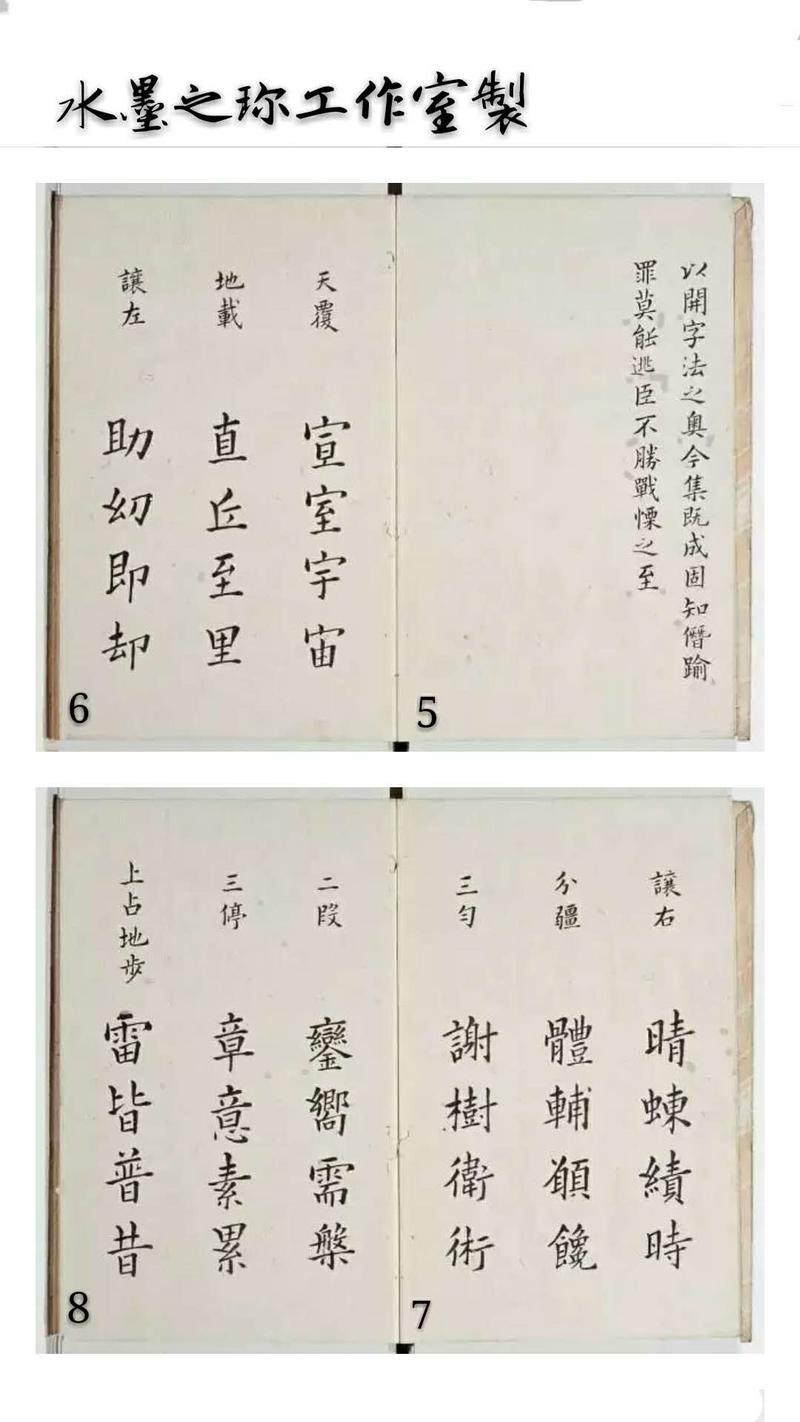 水墨之珎工作室製
以開字法之奧今集既成固知僭踰
罪莫能逃臣不勝戰慄之至
5
天覆
宣室宇宙
地載
直丘至里
讓左
助幼即却
6
讓右
晴蝀績時
分疆
體輔願饞
三勻
謝樹衛術
7
二段
鑾嚮需槃
三停
章意素累
上占地步
雷皆普昔
8